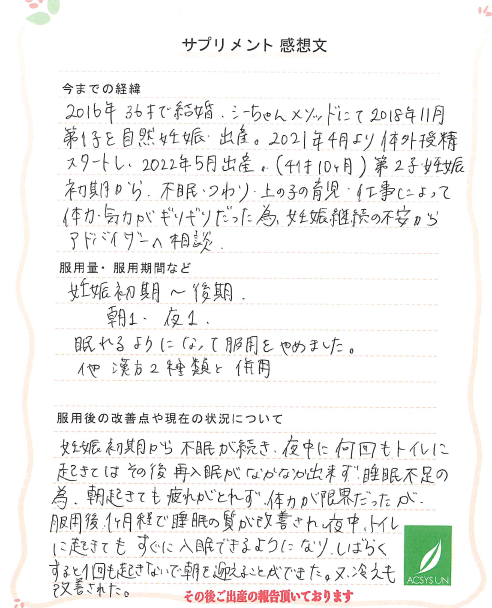 サプリメント 感想文
今までの経緯
2016年 36才で結婚. シーちゃんメソッドにて2018年11月
第1子を自然妊娠・出産。2021年4月より体外授精
スタートし、2022年5月出産。(41才10ヶ月) 第2子妊娠
初期から、不眠・つわり・上の子の育児・仕事によって
体力・気力がギリギリだった為、妊娠継続の不安から
アドバイザーへ相談.
服用量・服用期間など
妊娠初期 〜 後期.
朝1. 夜1.
眠れるようになって服用をやめました。
他 漢方2種類と併用
服用後の改善点や現在の状況について
妊娠初期から不眠が続き、夜中に何回もトイレに
起きてはその後再入眠がなかなか出来ず、睡眠不足の
為、朝起きても疲れがとれず、体力が限界だったが、
服用後、1ヶ月経て睡眠の質が改善され、夜中、トイレ
に起きてもすぐに入眠できるようになり、しばらく
すると1回も起きないで朝を迎えることができた。又、冷えも
改善された。
ACSYS UN
その後ご出産の報告頂いております